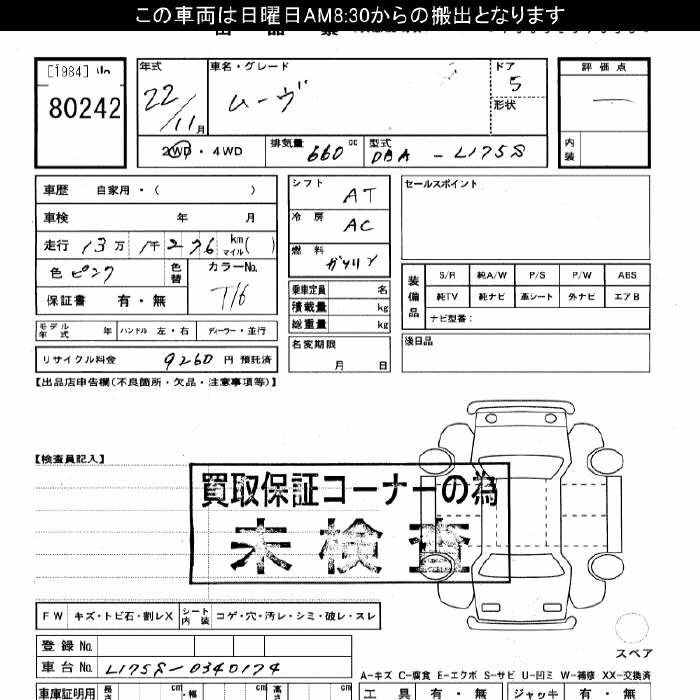 この車両は日曜日AM8:30からの搬出となります
[1984]
80242
年式
22/11月
車名・グレード
ムーヴ
ドア
5
形状
評価点
内装
2WD・4WD
排気量 660 cc
型式 DBA - L175S
車歴 自家用・( )
車検 年 月
走行 13万 1千276 km マイル ( )
色 ピンク 色替
カラーNo. T16
保証書 有・無
モデル年式 年 ハンドル 左・右 ディーラー・並行
リサイクル料金 9260 円 預託済
シフト AT
冷房 AC
燃料 ガソリン
乗車定員 名
積載量 kg
総重量 kg
名変期限
月 日
セールスポイント
装備品
S/R 純A/W P/S P/W ABS
純TV 純ナビ 革シート 外ナビ エアB
ナビ型番:
後日品
【出品店申告欄(不良箇所・欠品・注意事項等)】
【検査員記入】
買取保証コーナーの為
未検査
FW キズ・トビ石・割レX シート内装 コゲ・穴・汚レ・シミ・破レ・スレ
スペア
登録No.
車台No. L175S-0340174
A-キズ C-腐食 E-エクボ S-サビ U-凹ミ W-補修 XX-交換済
車庫証明用 長さ cm ・幅 cm 高さ cm
工具 有・無 ジャッキ 有・無